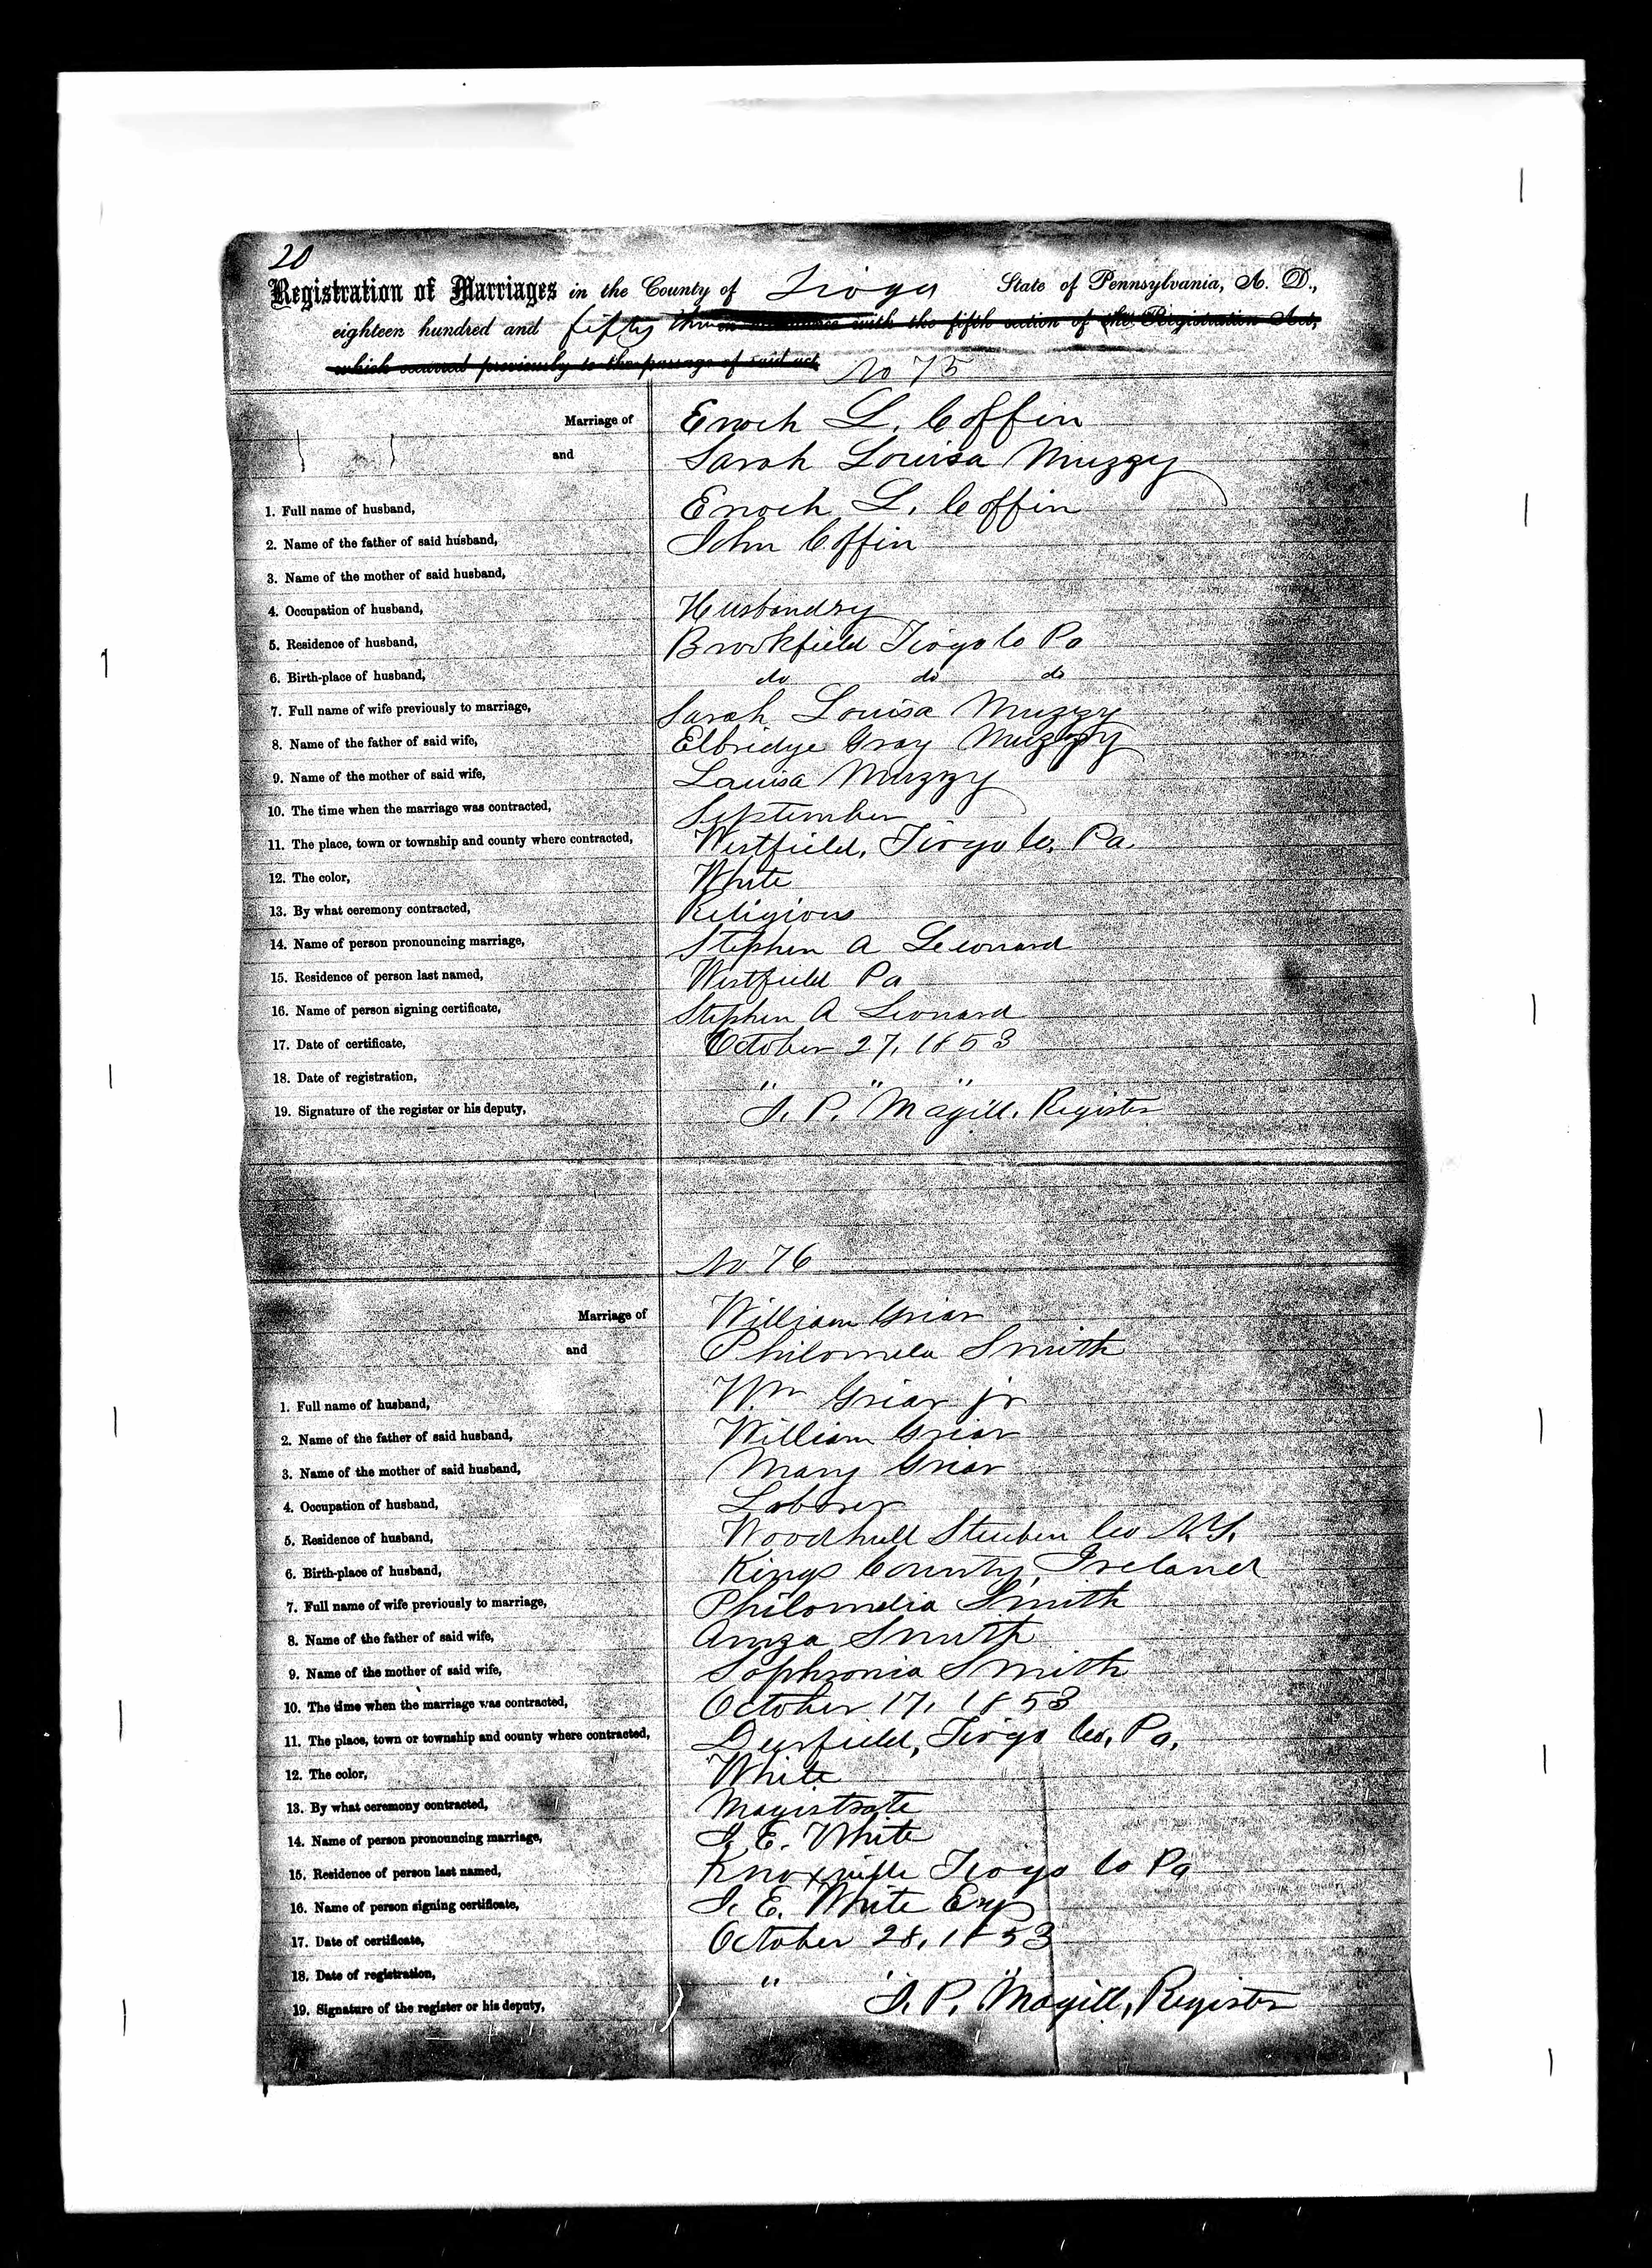 20
Registration of Marriages in the County of Tioga State of Pennsylvania, A. D.,
eighteen hundred and fifty three in accordance with the fifth section of the Registration Act,
which occurred previously to the passage of said act.
No 75
Marriage of Enoch L. Coffin
and Sarah Louisa Muzzy
1. Full name of husband, Enoch L. Coffin
2. Name of the father of said husband, John Coffin
3. Name of the mother of said husband,
4. Occupation of husband, Husbandry
5. Residence of husband, Brookfield Tioga Co Pa
6. Birth-place of husband, do do do
7. Full name of wife previously to marriage, Sarah Louisa Muzzy
8. Name of the father of said wife, Elbridge Gray Muzzy
9. Name of the mother of said wife, Louisa Muzzy
10. The time when the marriage was contracted, September
11. The place, town or township and county where contracted, Westfield, Tioga Co. Pa.
12. The color, White
13. By what ceremony contracted, Religious
14. Name of person pronouncing marriage, Stephen A Leonard
15. Residence of person last named, Westfield Pa
16. Name of person signing certificate, Stephen A Leonard
17. Date of certificate, October 27, 1853
18. Date of registration, " " "
19. Signature of the register or his deputy, J. P. Magill, Register
No 76
Marriage of William Griar
and Philomela Smith
1. Full name of husband, Wm Griar jr
2. Name of the father of said husband, William Griar
3. Name of the mother of said husband, Mary Griar
4. Occupation of husband, Laborer
5. Residence of husband, Woodhull Steuben Co N.Y.
6. Birth-place of husband, Kings County, Ireland
7. Full name of wife previously to marriage, Philomelia Smith
8. Name of the father of said wife, Amza Smith
9. Name of the mother of said wife, Sophronia Smith
10. The time when the marriage was contracted, October 17, 1853
11. The place, town or township and county where contracted, Deerfield, Tioga Co, Pa,
12. The color, White
13. By what ceremony contracted, Magistrate
14. Name of person pronouncing marriage, J. E. White
15. Residence of person last named, Knoxville Tioga Co Pa
16. Name of person signing certificate, J. E. White Esq
17. Date of certificate, October 28, 1853
18. Date of registration, " " "
19. Signature of the register or his deputy, J. P. Magill, Register